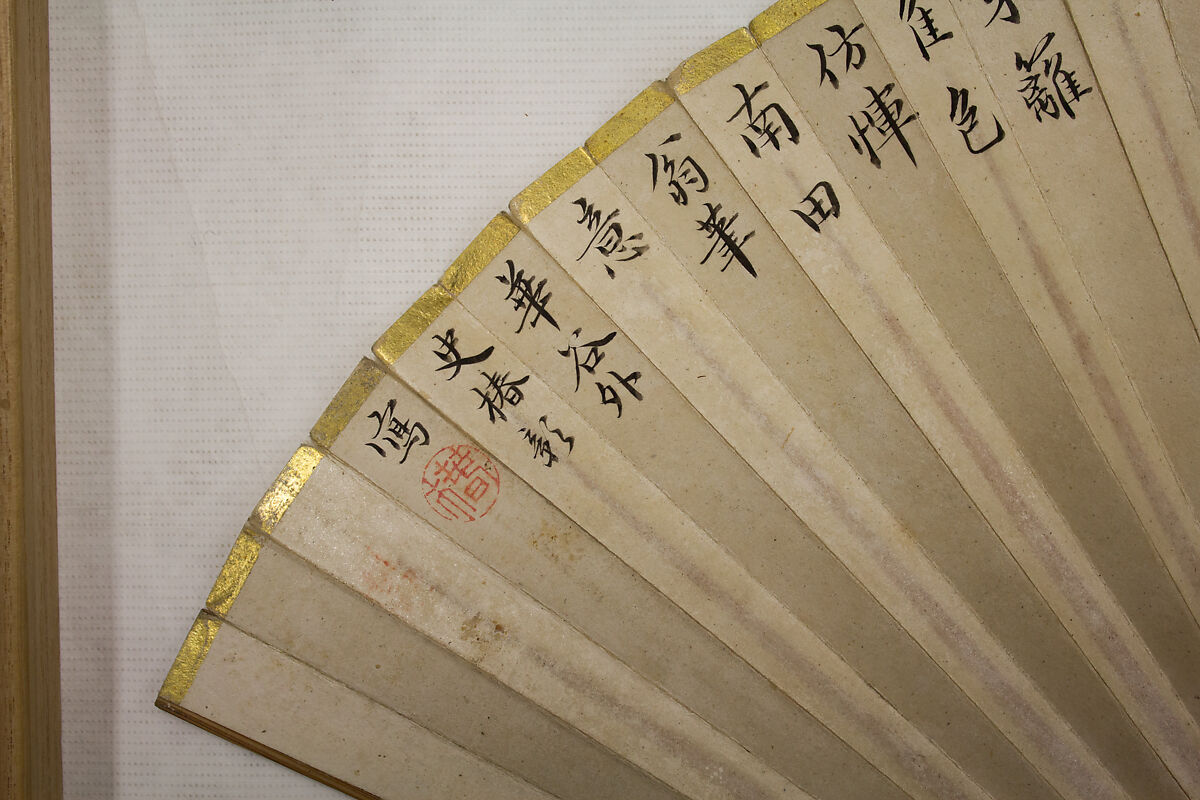 籬
佳色
仿惲
南田
翁筆
意
華谷外
史椿彰
寫